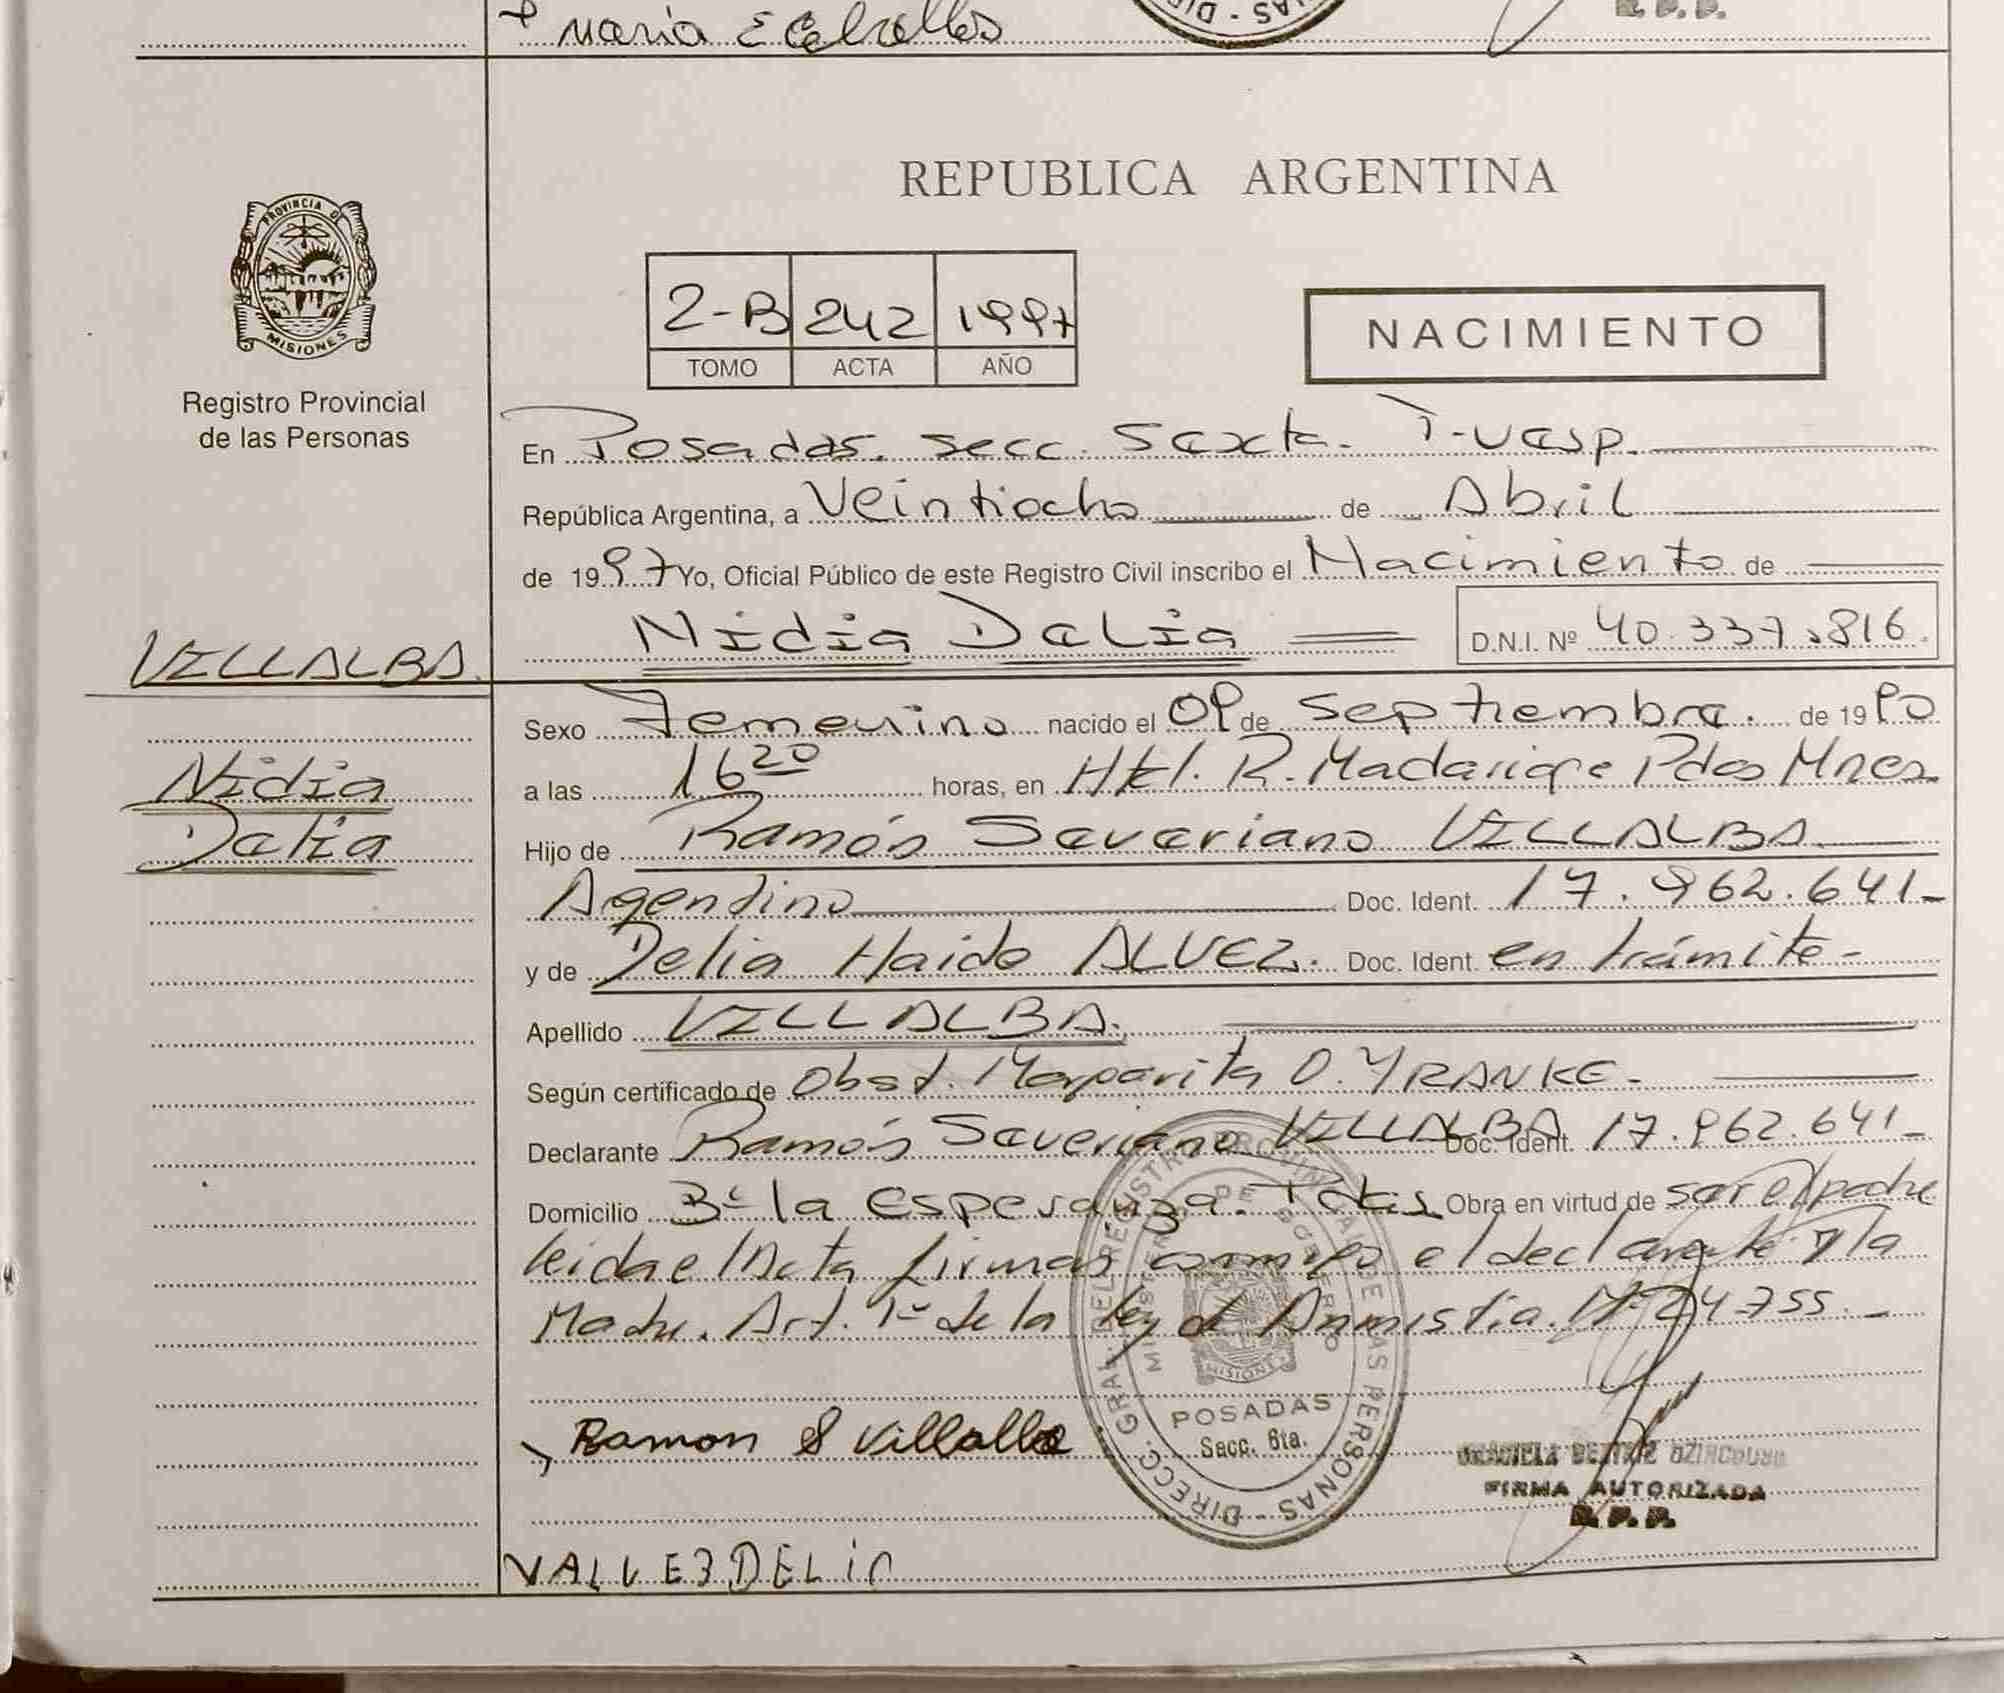 Maria E Ceballos
PROVINCIA DE
MISIONES
Registro Provincial
de las Personas
REPUBLICA ARGENTINA
2-B 242 1997
TOMO ACTA AÑO
NACIMIENTO
En Posadas. secc. Sexta. T-vesp.
República Argentina, a Veintiocho de Abril
de 1997 Yo, Oficial Público de este Registro Civil inscribo el Nacimiento de
VILLALBA. Nidia Dalia D.N.I. Nº 40.337.816.
Sexo Femenino nacido el 09 de Septiembre. de 1990
Nidia
Dalia
a las 16 20 horas, en Htl. R. Madariaga Pdas Mnes.
Hijo de Ramón Severiano VILLALBA
Argentino Doc. Ident. 17.962.641-
y de Delia Haide ALVEZ. Doc. Ident. en trámite-
Apellido VILLALBA.
Según certificado de Obst. Margarita O. YRANKE-
Declarante Ramón Severiano VILLALBA Doc. Ident. 17.962.641-
Domicilio Bº la esperanza. Pdas Obra en virtud de ser el padre
leida el Acta firman conmigo el declarante y la
Madre. Art. 1º de la ley de Amnistia. Nº 24755.-
Ramon S Villalba
DIRECC. GRAL. DEL REGISTRO PROVINCIAL DE LAS PERSONAS
MISIONES
POSADAS
Secc. 6ta.
GRACIELA BEATRIZ
FIRMA AUTORIZADA
R.P.P.
VALVEZ DELIA